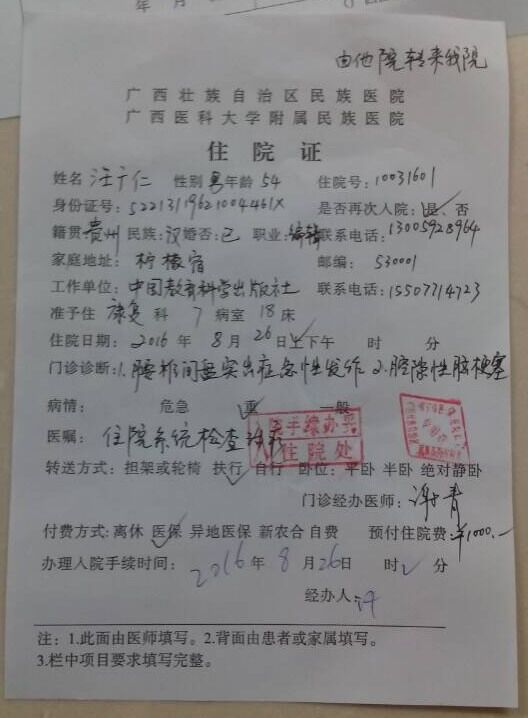 由他院转来我院
广西壮族自治区民族医院
广西医科大学附属民族医院
住院证
姓名 汪广仁 性别 男 年龄 54 住院号：10031601
身份证号：52213119621004461X 是否再次入院：是、否
籍贯：贵州 民族：汉 婚否：已 职业：编辑 联系电话：13005928964
家庭地址：柠檬宿 邮编：530001
工作单位：中国教育科学出版社 联系电话：15507714723
准予住 康复 科 7 病室 18 床
住院日期：2016 年 8 月 26 日上下午 时 分
门诊诊断：1.腰椎间盘突出症急性发作 2.腔隙性脑梗塞
病情： 危急 重 一般
医嘱：住院系统检查治疗
入院手续办妥
住院处
转送方式：担架或轮椅 扶行 自行 卧位：平卧 半卧 绝对静卧
门诊经办医师：谢青
付费方式：离休 医保 异地医保 新农合 自费 预付住院费：¥1000.—
办理入院手续时间：2016 年 8 月 26 日 时 分
经办人：
注：1.此面由医师填写。2.背面由患者或家属填写。
3.栏中项目要求填写完整。